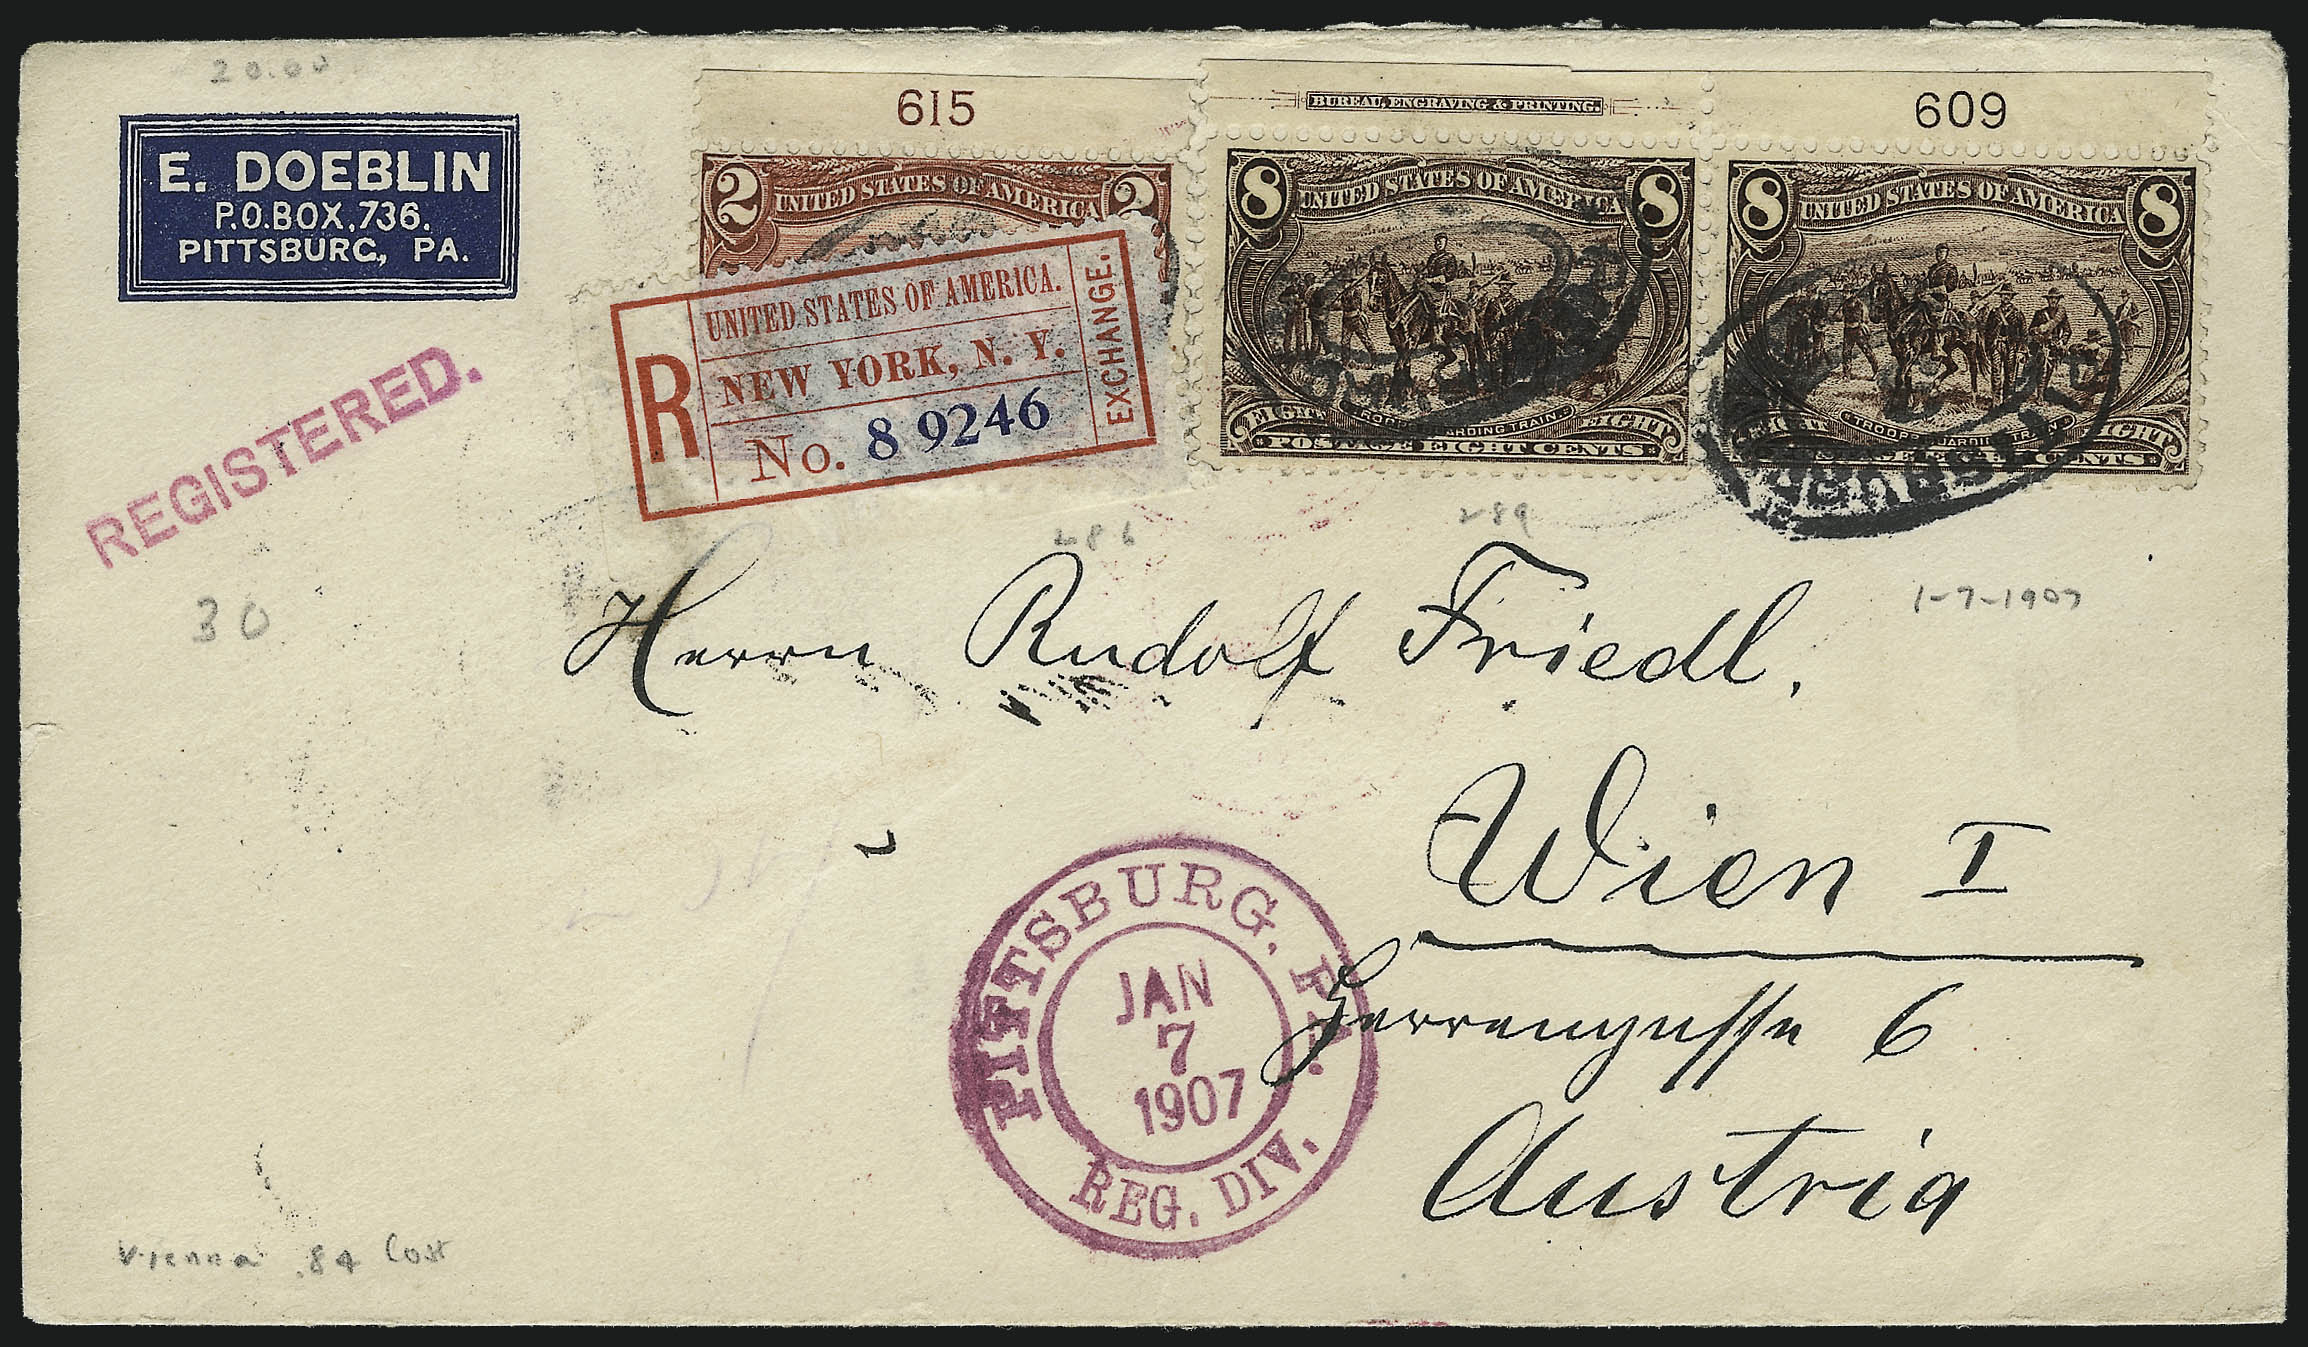 20.00
E. DOEBLIN
P.O.BOX,736.
PITTSBURG, PA.
REGISTERED.
30
615
BUREAU, ENGRAVING & PRINTING.
609
2 UNITED STATES OF AMERICA 2
8 UNITED STATES OF AMERICA 8
TROOPS GUARDING TRAIN.
EIGHT EIGHT
POSTAGE EIGHT CENTS
8 UNITED STATES OF AMERICA 8
TROOPS GUARDING TRAIN.
EIGHT EIGHT
POSTAGE EIGHT CENTS
R
UNITED STATES OF AMERICA.
NEW YORK, N. Y.
No. 8 9246
EXCHANGE.
286
289
1-7-1907
Herrn Rudolf Friedl.
Wien I
Herrengasse 6
Austria
PITTSBURG, PA.
JAN
7
1907
REG. DIV.
Vienna .84 Cost